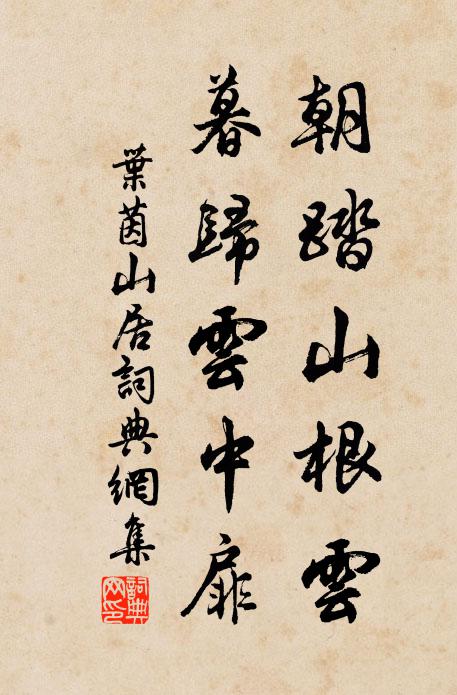 朝踏山根雲
暮歸雲中扉
葉茵山居詞典網集
詞典
网印